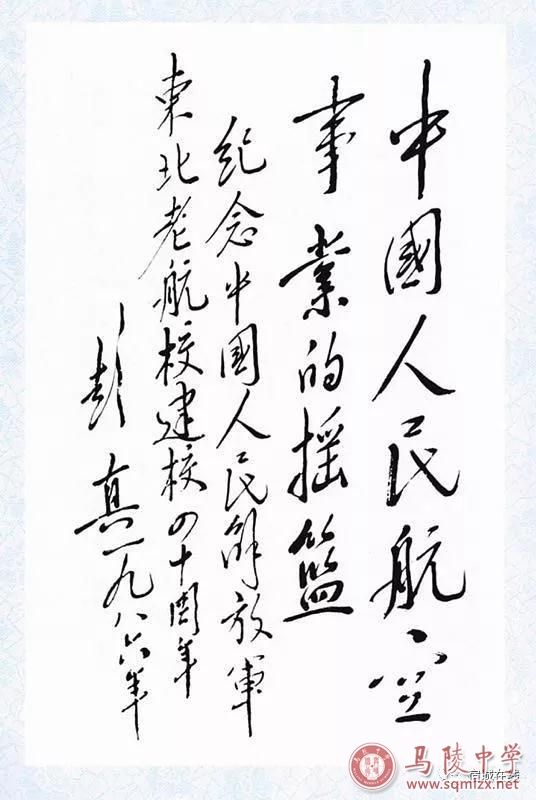 中國人民航空
事業的摇籃
纪念中國人民解放軍
東北老航校建校四十周年
彭真一九八六年
马陵中学
宿城在线
www.sqmizx.net